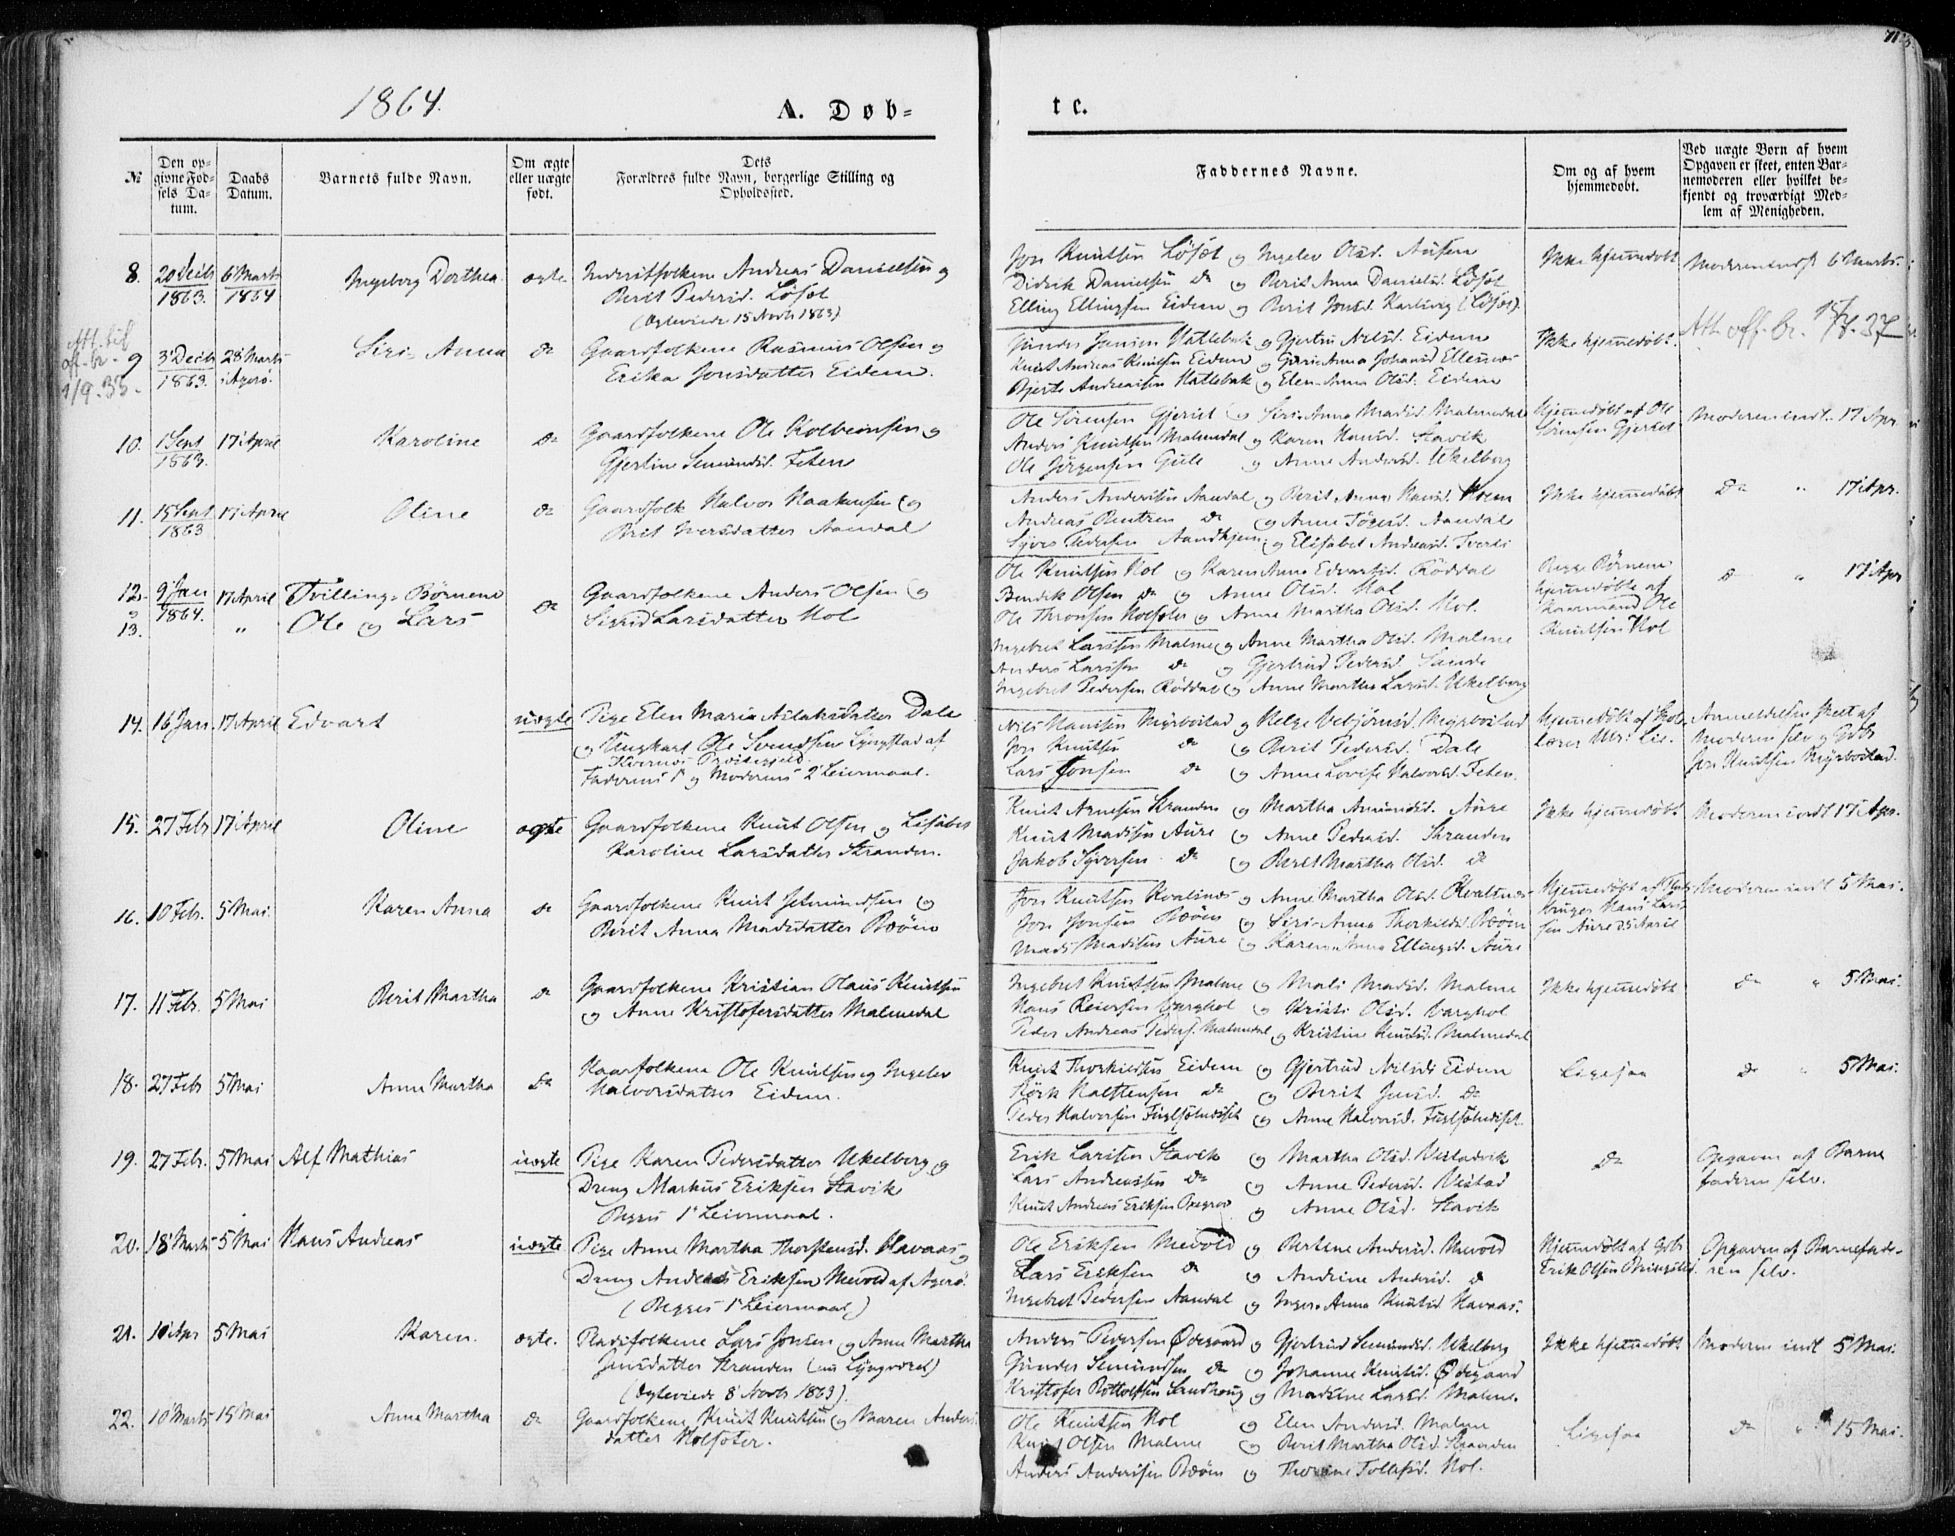 1864.
A. Døb-
te.
№
Den op-
givne Fød-
sels Da-
tum.
Daabs
Datum.
Barnets fulde Navn.
Om ægte
eller uægte
født.
Dets
Forældres fulde Navn, borgerlige Stilling og
Opholdssted.
Faddernes Navne.
Om og af hvem
hjemmedøbt.
Ved uægte Børn af hvem
Opgaven er skeet, enten Bar-
nemoderen eller hvilket be-
kjendt og troværdigt Med-
lem af Menigheden.
8. 20 Decbr 1863. 6 Marts 1864 Ingeborg Dorthea ægte Inderstfolkene Andreas Danielsen og
Berit Pedersd. Løset
(Ægteviede 15 Novbr 1863)
Jon Knutsen Løset og Ingelev Olsd.
Didrik Danielsen do og Berit Anna Danielsd. Løset
Elling Ellingsen Eidem og Berit Jonsd. Karlsvig (Løset).
Ikke hjemmedøbt
Moderen indl. 6 Marts.
Att. til
of. br.
1/9.35.
9 3 Decbr 1863. 28 Marts i Agerø. Siri-Anna do Gaardfolkene Rasmus Olsen og
Erika Jonsdatter Eidem.
Gunder Jansen Hatlebak og Gjertru Nilsd. Eidem
Knut Andreas Knutsen Eidem og Guri Anna Johansd
Bjerte Andreassen Hatlebak og Elen-Anna Olsd. Eidem
Ikke hjemmedøbt.
Att. off. br.
10. 1 Sept 1863. 17 April Karoline do Gaardfolkene Ole Kolbeinsen og
Gjertine Semundsd. Feten
Ole Sørensen Gjerset og Siri-Anna Madsd. Malmedal
Anders Knutsen Malmedal og Karen Hansd. Stavik
Ole Jørgensen Gule og Anne Andersd. Ukelberg
Hjemmedøbt af Ole
Sørensen Gjerset
Moderen indl. 17 Apr.
11. 15 Sept 1863 17 April Oline do Gaardfolk Halvor Haakensen og
Brit Iversdatter Aandal
Anders Andersen Aandal og Berit Anna Hansd. Hoem
Andreas Bentsen do og Anne Tøresd. Aandal
Syver Pedersen og Elisabet Andreasd. Tverli
Ikke hjemmedøbt
do " 17 Apr.
12. & 13. 9 Jan 1864. 17 April " Tvillinge Børnene
Ole og Lars do Gaardfolkene Anders Olsen og
Sigrid Larsdatter Hol
Ole Knutsen Hol og Karen Anna Edvartsd. Røddal
Bendik Olsen do og Anne Olsd. Hol
Ole Thronsen Holsøter og Anne Martha Olsd. Hol.
Ingebret Larssen Malme og Anne Martha Olsd. Malme
Anders Larssen do og Gjertrud Pedersd. Sande
Ingebret Pedersen Røddal og Anne Martha Larsd. Ukelberg
Begge Børnene
hjemmedøbte af
Ole
Knutsen Hol
do " 17 Apr
14. 16 Jan. 17 April Edvart uægte Pige Elen Maria Aslaksdatter Dale
og Ungkarl Ole Svendsen Lyngstad af
Kvernes Præstegjeld.
Faderens 1' og Moderens 2' Leiermaal.
Nils Hansen Myrbostad og Helge Vebjørnsd. Myrbostad
Jon Knutsen do og Berit Pedersd. Dale
Lars Jonsen do og Anne Lovise Halvorsd. Feten.
Hjemmedøbt af Skol-
lærer Lie.
Anmeldelsen skeet af
Moderen selv og Gbr
Jon Knutsen Myrbostad.
15. 27 Feb 17 April Oline ægte Gaardfolkene Knut Olsen og Lisabet
Karoline Larsdatter Stranden.
Knut Arnesen Stranden og Martha Amundsd. Aure
Knut Madsen Aure og Anne Pedersd. Stranden
Jakob Syversen do og Berit Martha Olsd. do
Ikke hjemmedøbt
Moderen indl 17 Apr.
16. 10 Feb. 5 Mai. Karen Anna do Gaardfolkene Knut Semundsen og
Berit Anna Madsdatter Bøøen
Jon Knutsen Kvalsnes og Anne Martha Olsd. Kvalsnes
Jon Jonsen Bøøen og Siri-Anna Thorkildsd. Bøøen
Mads Madsen Aure og Karen-Anna Ellingsd. Aure
Hjemmedøbt af
Hans Lars-
sen Aure 25 April
Moderen indl 5 Mai.
17. 11 Feb. 5 Mai Berit Martha do Gaardfolkene Kristian Olaus Knutsen
og Anne Kristofersdatter Malmedal
Ingebret Knutsen Malme og Mali Madsd. Malme
Hans Reiersen Varghol og Kristi Olsd. Varghol
Peder Andreas Peders. Malmedal og Kristine Knutsd. Malmedal
Ikke hjemmedøbt
do " 5 Mai.
18. 27 Feb 5 Mai Anne Martha do Gaardfolkene Ole Knutsen og Ingelev
Halvorsdatter Eidem.
Knut Thorkildsen Eidem og Gjertrud Nilsd. Eidem
Størk Halstensen do og Berit Jonsd. do
Peder Halvorsen og Anne Halvorsd.
Ligesaa
do " 5 Mai.
19. 27 Feb. 5 Mai Alf Mathias uægte Pige Karen Pedersdatter Ukelberg og
Dreng Markus Eriksen Stavik
Begges 1' Leiermaal.
Erik Larssen Stavik og Martha Olsd.
Lars Andreassen do og Anne Pedersd. Vistad
Knut Andreas Eriksen og Anne Olsd. Stavik
do
Opgaven af Barne
faderen selv.
20. 18 Marts 5 Mai Hans Andreas uægte Pige Anne Martha Thorstensd. Havaas og
Dreng Anders Eriksen Mevold af Agerø.
(Begges 1' Leiermaal)
Ole Eriksen Mevold og Bertine Andersd. Mevold
Lars Eriksen do og Andrine Andersd. do
Ingebret Pedersen Aandal og Inger-Anna Knutsd. Havaas.
Hjemmedøbt af Gbr
Erik Olsen
Opgaven af Barnefade-
ren selv.
21. 10 Apr 5 Mai Karen. ægte. Pladsfolkene Lars Jonsen og Anne Martha
Jensdatter Stranden (nu Lyngværet)
(Ægteviede 8 Novbr 1863).
Anders Pedersen Ødegaard og Gjertrud Semundsd. Ukelberg
Gunder Semundsen do og Johanne Knutsd. Ødegaard
Kristofer Rottolfsen Sandhoug og Madsine Larsd. Malme.
Ikke hjemmedøbt
Moderen indl 5 Mai.
22. 10 Marts 15 Mai Anne Martha do Gaardfolkene Knut Knutsen og Maren Anders
datter Holsøter.
Ole Knutsen Hol og Elen Andersd. Malme
Knut Olsen Malme og Berit Martha Olsd. Stranden
Anders Andersen Bøøen og Thorine Tollefsd. Hol.
Ligesaa
do " 15 Mai.